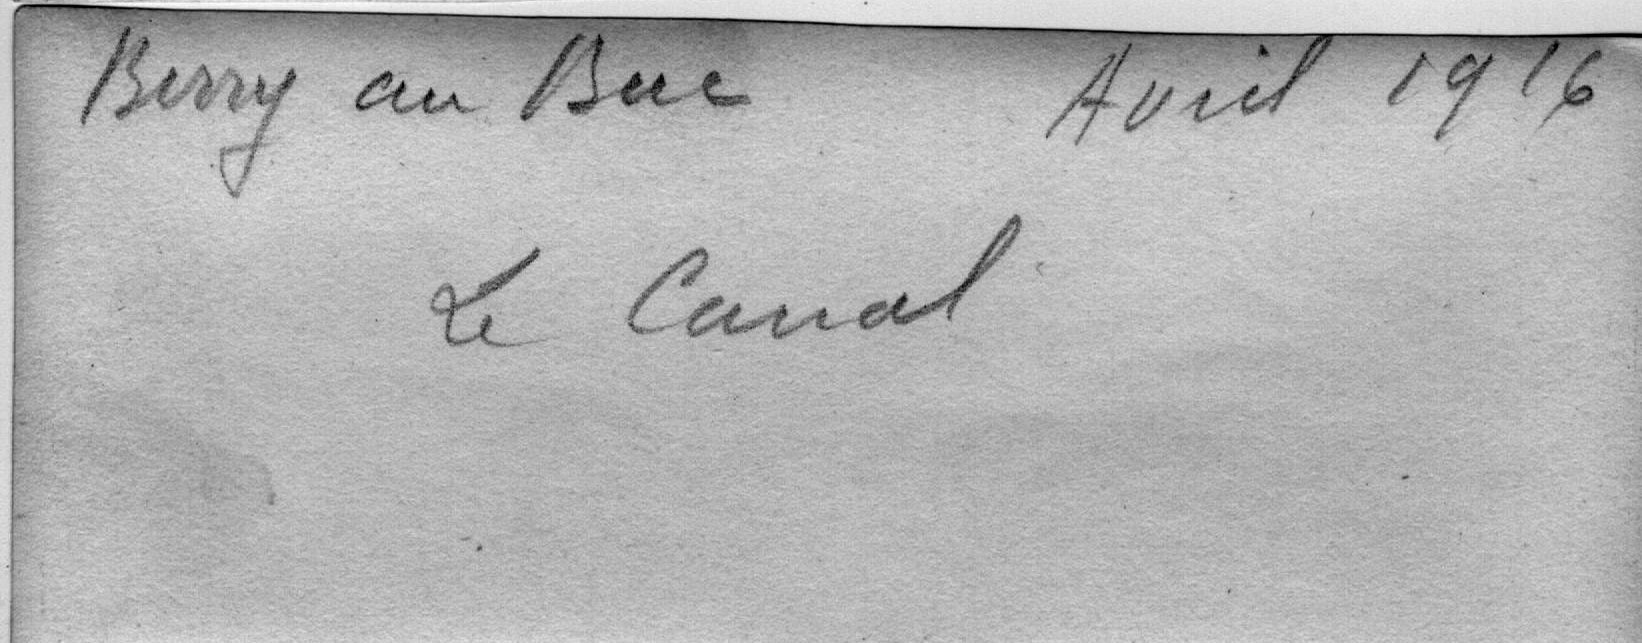 Berry au Buc Avril 1916
Le Canal